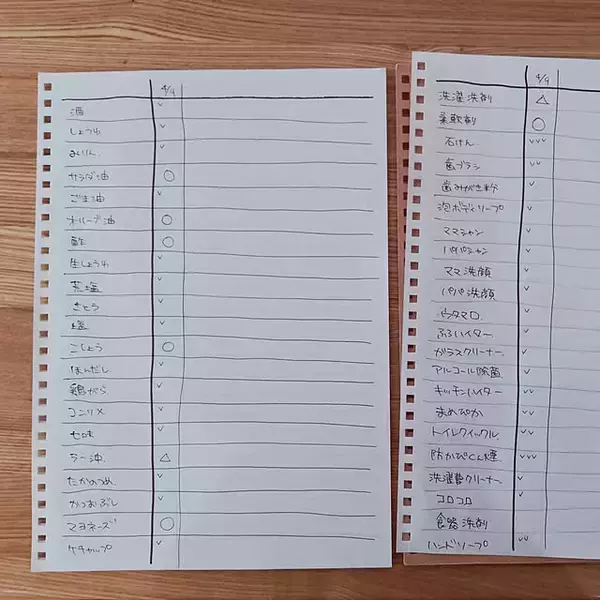 4/4
酒 ✓
しょうゆ ✓
みりん ✓
サラダ油 ○
ごま油 ✓
オリーブ油 ○
酢 ○
生しょうゆ ✓
荒塩 ✓
さとう ✓
塩 ✓
こしょう ○
ほんだし ✓
鶏がら ✓
コンソメ ✓
七味 ✓
ラー油 △
たかのつめ ✓
かつおぶし ✓
マヨネーズ ○
ケチャップ ✓
4/4
洗濯洗剤 △
柔軟剤 ○
石けん ✓✓✓
歯ブラシ ✓✓
歯みがき粉 ✓
泡ボディソープ ✓
ママシャン ✓
パパシャン ✓
ママ洗顔 ✓
パパ洗顔 ✓
ウタマロ ✓
ふろハイター ✓
ガラスクリーナー ✓
アルコール除菌 ✓
キッチンハイター ✓✓
まめぴか ✓✓
トイレクイックル ✓✓
防かびくん煙 ✓✓✓
洗濯槽クリーナー ✓
コロコロ ✓
食器洗剤
ハンドソープ ✓✓